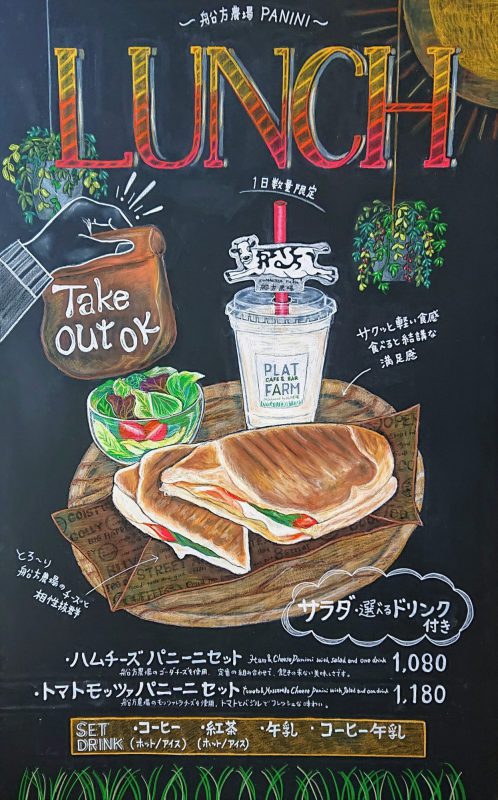 〜船方農場 PANINI〜
LUNCH
1日数量限定
Take
out ok
船方農場
PLAT
CAFE & BAR
FARM
サクッと軽い食感
食べると結構な
満足度
とろ〜り
船方農場のチーズと
相性抜群
サラダ・選べるドリンク
付き
・ハムチーズ パニーニセット Ham & Cheese Panini with salad and one drink 1,080
船方農場のゴーダチーズを使用。定番の組み合わせで、飽きの来ない美味しさです。
・トマトモッツァパニーニセット Tomato & Mozzarella Cheese Panini with Salad and one drink 1,180
船方農場のモッツァレラチーズを使用。トマトとバジルでフレッシュな味わい。
SET
DRINK
・コーヒー
(ホット/アイス)
・紅茶
(ホット/アイス)
・牛乳
・コーヒー牛乳